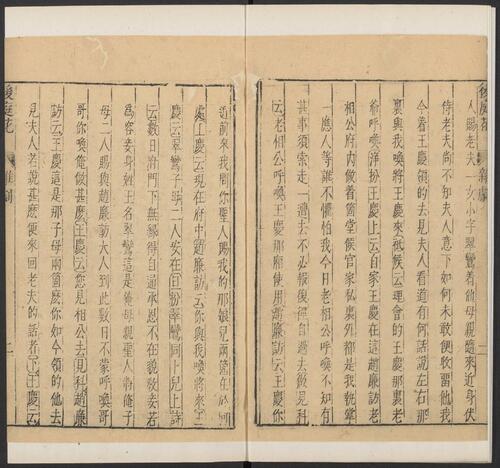 後庭花 雜劇
人賜老夫一女小字翠鸞着他母親隨來近身伏
侍老夫尚不知夫人意下如何未敢便收留他我
今着王慶領的去見夫人看道有何話說左右那
裏與我喚將王慶來祗候云理會的王慶那裏老
爺呼喚淨扮王慶上云自家王慶在這趙廉訪老
相公府內做着箇堂候官家私裏外都是我執掌
一應人等誰不懼怕我今日老相公呼喚不知有
甚事須索走一遭去不必報復徑自過去做見科
云老相公呼喚王慶那廂使用趙廉訪云王慶你
近前來我問你聖人賜我的那娘兒兩箇在於何
處王慶云現在府中趙廉訪云你與我喚將來王
慶云翠鸞子母二人安在旦扮翠鸞同卜兒上詩
云數日府門下無緣得自通承恩不在貌教妾若
為容妾身姓王名翠鸞這是俺母親聖人將俺子
母二人賜與趙廉訪大人到此數日不蒙呼喚哥
哥你喚俺做甚麼王慶云您見相公去見科趙廉
訪云王慶這是那子母兩箇麼你如今領的他去
見夫人若說甚麼便來回老夫的話者下王慶云
後庭花 雜劇 二